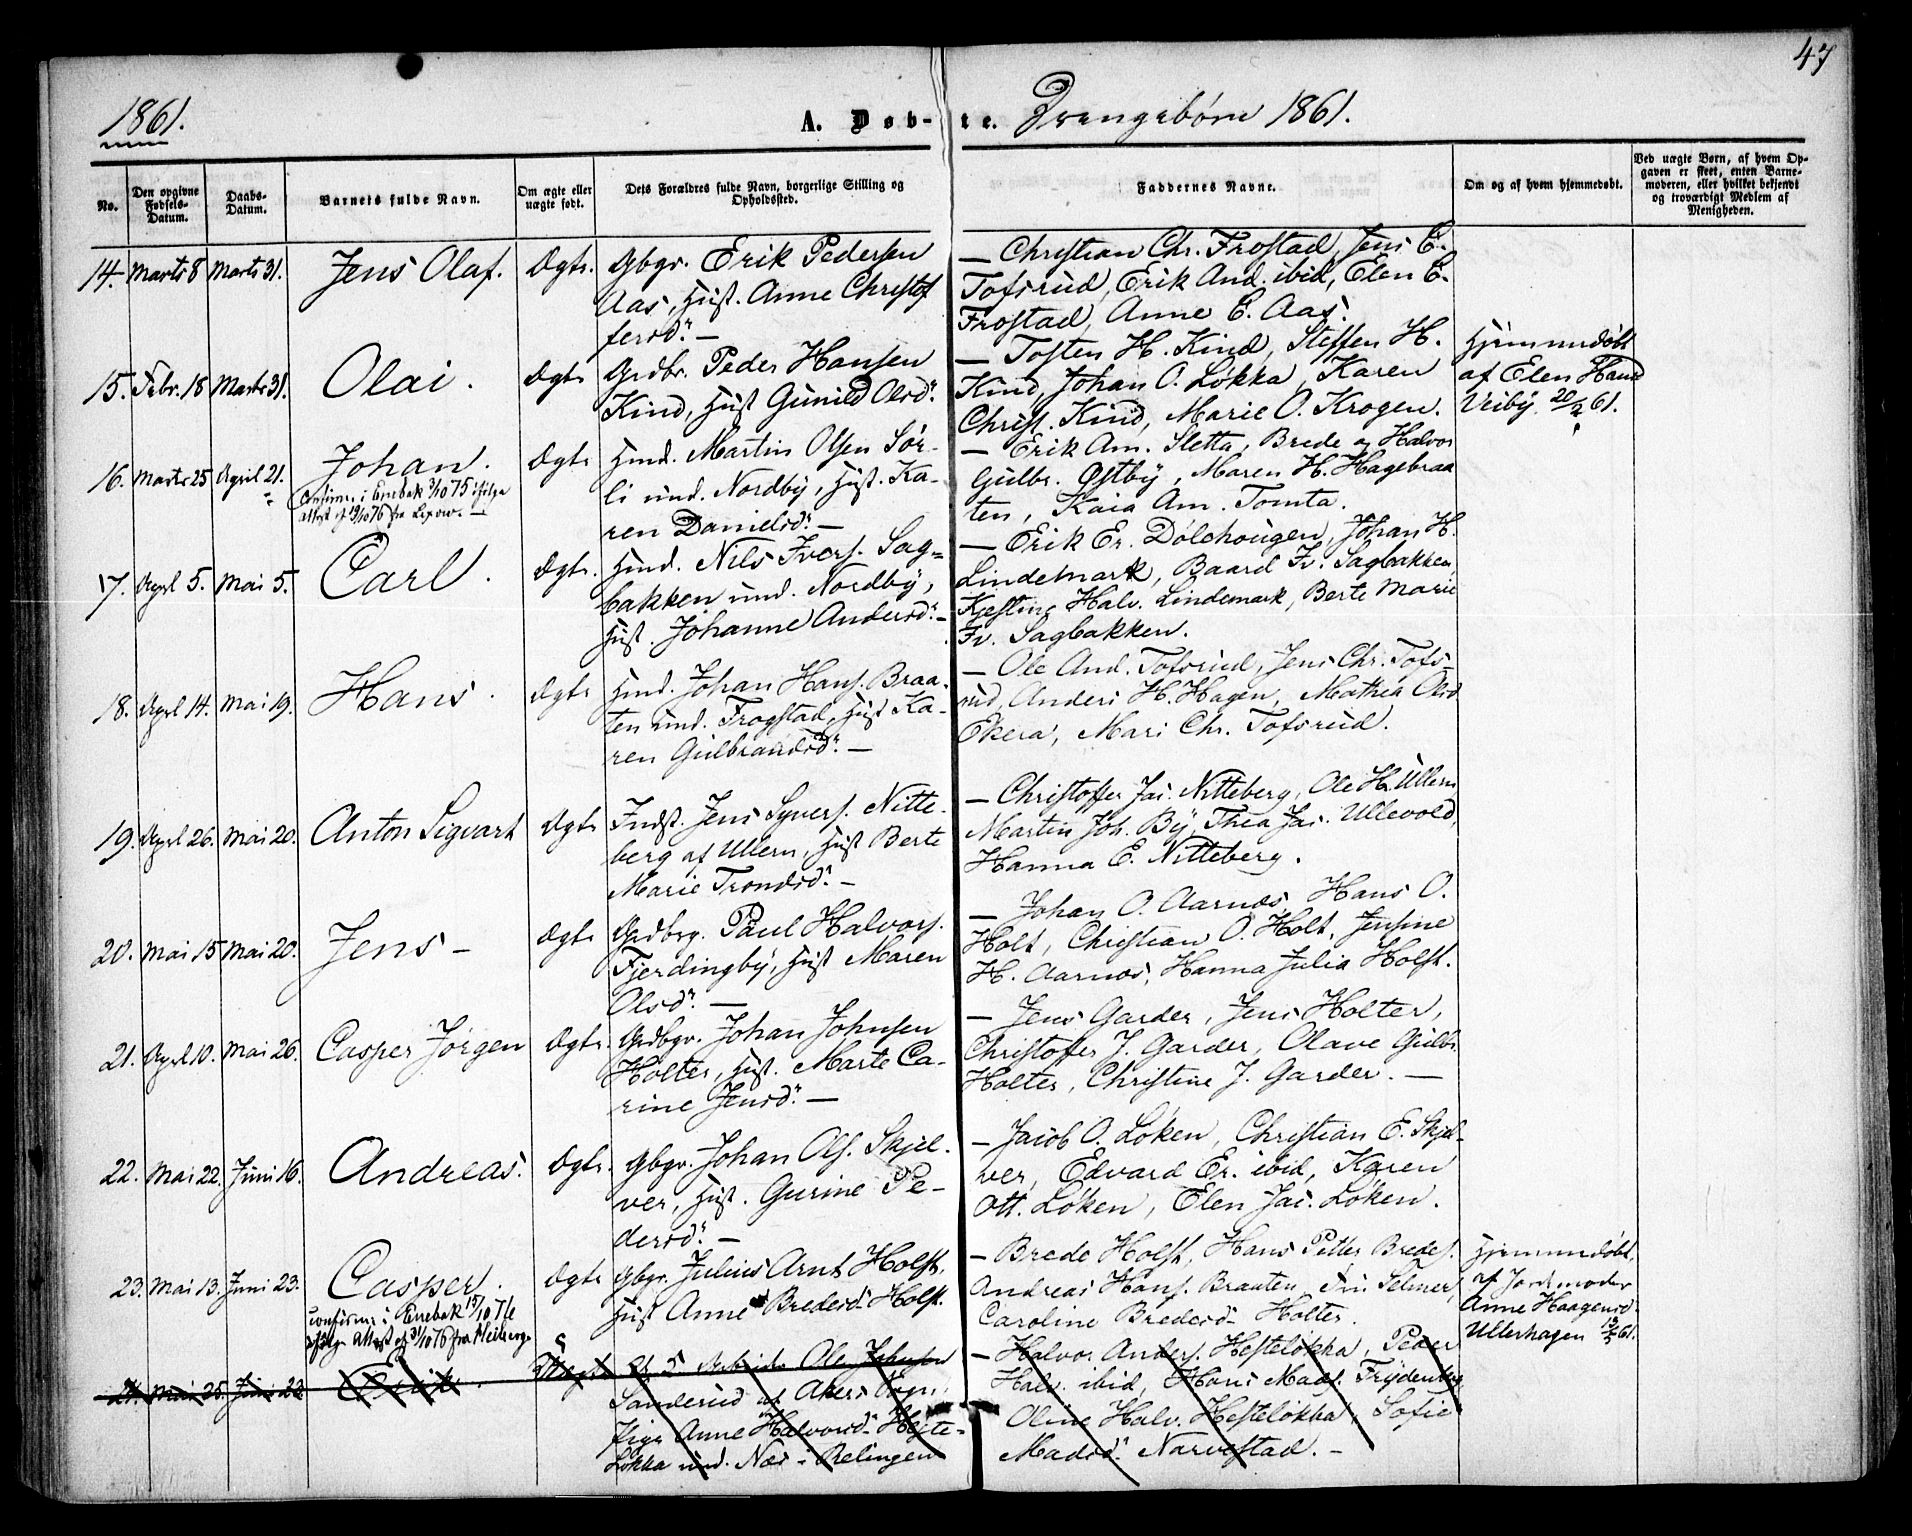 47
1861.
A. Døb-te. Drengebørn 1861.
No.
Den opgivne Fødsels-Datum.
Daabs-Datum.
Barnets fulde Navn.
Om ægte eller uægte født.
Dets Forældres fulde Navn, borgerlige Stilling og Opholdssted.
Faddernes Navne.
Om og af hvem hjemmedøbt.
Ved uægte Børn, af hvem Opgaven er skeet, enten Barnemoderen, eller hvilket bekjendt og troværdigt Medlem af Menigheden.
14. Marts 8 Marts 31. Jens Olaf. Ægte. Gbgr. Erik Pedersen
Aas, Hust. Anne Christof
fersd. —
— Christian Chr. Frostad, Jens E.
Tofsrud, Erik And. ibid, Elen E.
Frostad, Anne E. Aas.
15. Febr. 18 Marts 31. Olai. Ægte Grdbr. Peder Hansen
Kind, Hust Gunild Olsd.
— Tosten H. Kind, Steffen H.
Kind, Johan O. Løkka, Karen
Christ. Kind, Marie O. Krogen.
Hjemmedøbt
af Elen Hansd
Veiby 20/2 61.
16. Marts 25 April 21. Johan. Ægte Hmd. Martin Olsen Sør-
li und. Nordby, Hust. Ka-
ren Danielsd. —
Confirm. i Enebak 3/10 75 ifølge
Attest af 19/10 76 fra
— Erik Am. Sletta, Brede og Halvor
Gulbr. Østby, Maren H. Hagebraa
ten, Kaia Am. Tomta.
17. Aprl 5. Mai 5. Carl. Ægte. Hmd. Nils Ivers. Sag-
bakken und. Nordby,
Hust. Johanne Andersd. —
— Erik Er. Dølehougen, Johan H.
Lindemark, Baard Iv. Sagbakken,
Kjestine Halv. Lindemark, Berte Marie
Iv. Sagbakken.
18. Aprl 14. Mai 19. Hans. Ægte Hmd. Johan Hans. Braa-
ten und. Frogstad, Hust Ka-
ren Gulbrandsd. —
— Ole And. Tofsrud, Jens Chr. Tofs-
rud, Anders H. Hagen, Mathea Olsd
Økera, Mari Chr. Tofsrud.
19. Aprl 26. Mai 20. Anton Sigvart Ægte Indst. Jens Syvers. Nitte-
berg af Ullern, Hust Berte
Marie Trondsd. —
— Christoffer Jac. Nitteberg, Ole H. Ullern
Martin Joh. By, Thea Jac. Ullevold,
Hanna E. Nitteberg.
20. Mai 15 Mai 20. Jens — Ægte Grdbrg. Paul Halvors.
Fjerdingby, Hust Maren
Olsd. —
— Johan O. Aarnes, Hans O.
Holt, Christian O. Holt, Jensine
H. Aarnes, Hanna Julia Holst.
21. Aprl 10. Mai 26. Casper Jørgen Ægte. Grdbgr. Johan Johnsen
Holter, Hust. Marte Ca-
rine Jensd. —
— Jens Garder, Jens Holter,
Christoffer J. Garder, Olave Gulbr.
Holter, Christine J. Garder. —
22. Mai 22. Juni 16. Andreas. Ægte. Gbgr. Johan Ols. Skjel-
ver, Hust. Gurine Pe-
dersd. —
— Jacob O. Løken, Christian E. Skjel-
ver, Edvard Er. ibid, Karen
Ott. Løken, Elen Jac. Løken.
23. Mai 13. Juni 23. Casper. Ægte Gbgr. Julius Arnt Holst,
Hust Anne Bredesd. Holst.
Confirm. i Enebak 15/10 76
ifølge Attest af 31/10 76 fra
— Brede Holst, Hans Petter Bredes.
Andreas Hans. Braaten, Selmer,
Caroline Bredesd. Holter.
Hjemmedøbt
af Jordemoder
Anne Haagensd.
Ullerhagen 13/5 61.
24. Mai 25. Juni 23. Uægte Ole Johnsen
Sanderud af Akers Sogn,
Pige Anne Halvorsd. Heste-
Løkka und. Næs i Rælingen
— Halvor Anders. Hesteløkka, Peder
Halv. ibid, Hans Mads. Frydenberg
Oline Halv. Hesteløkka, Sofie
Madsd. Narvestad. —